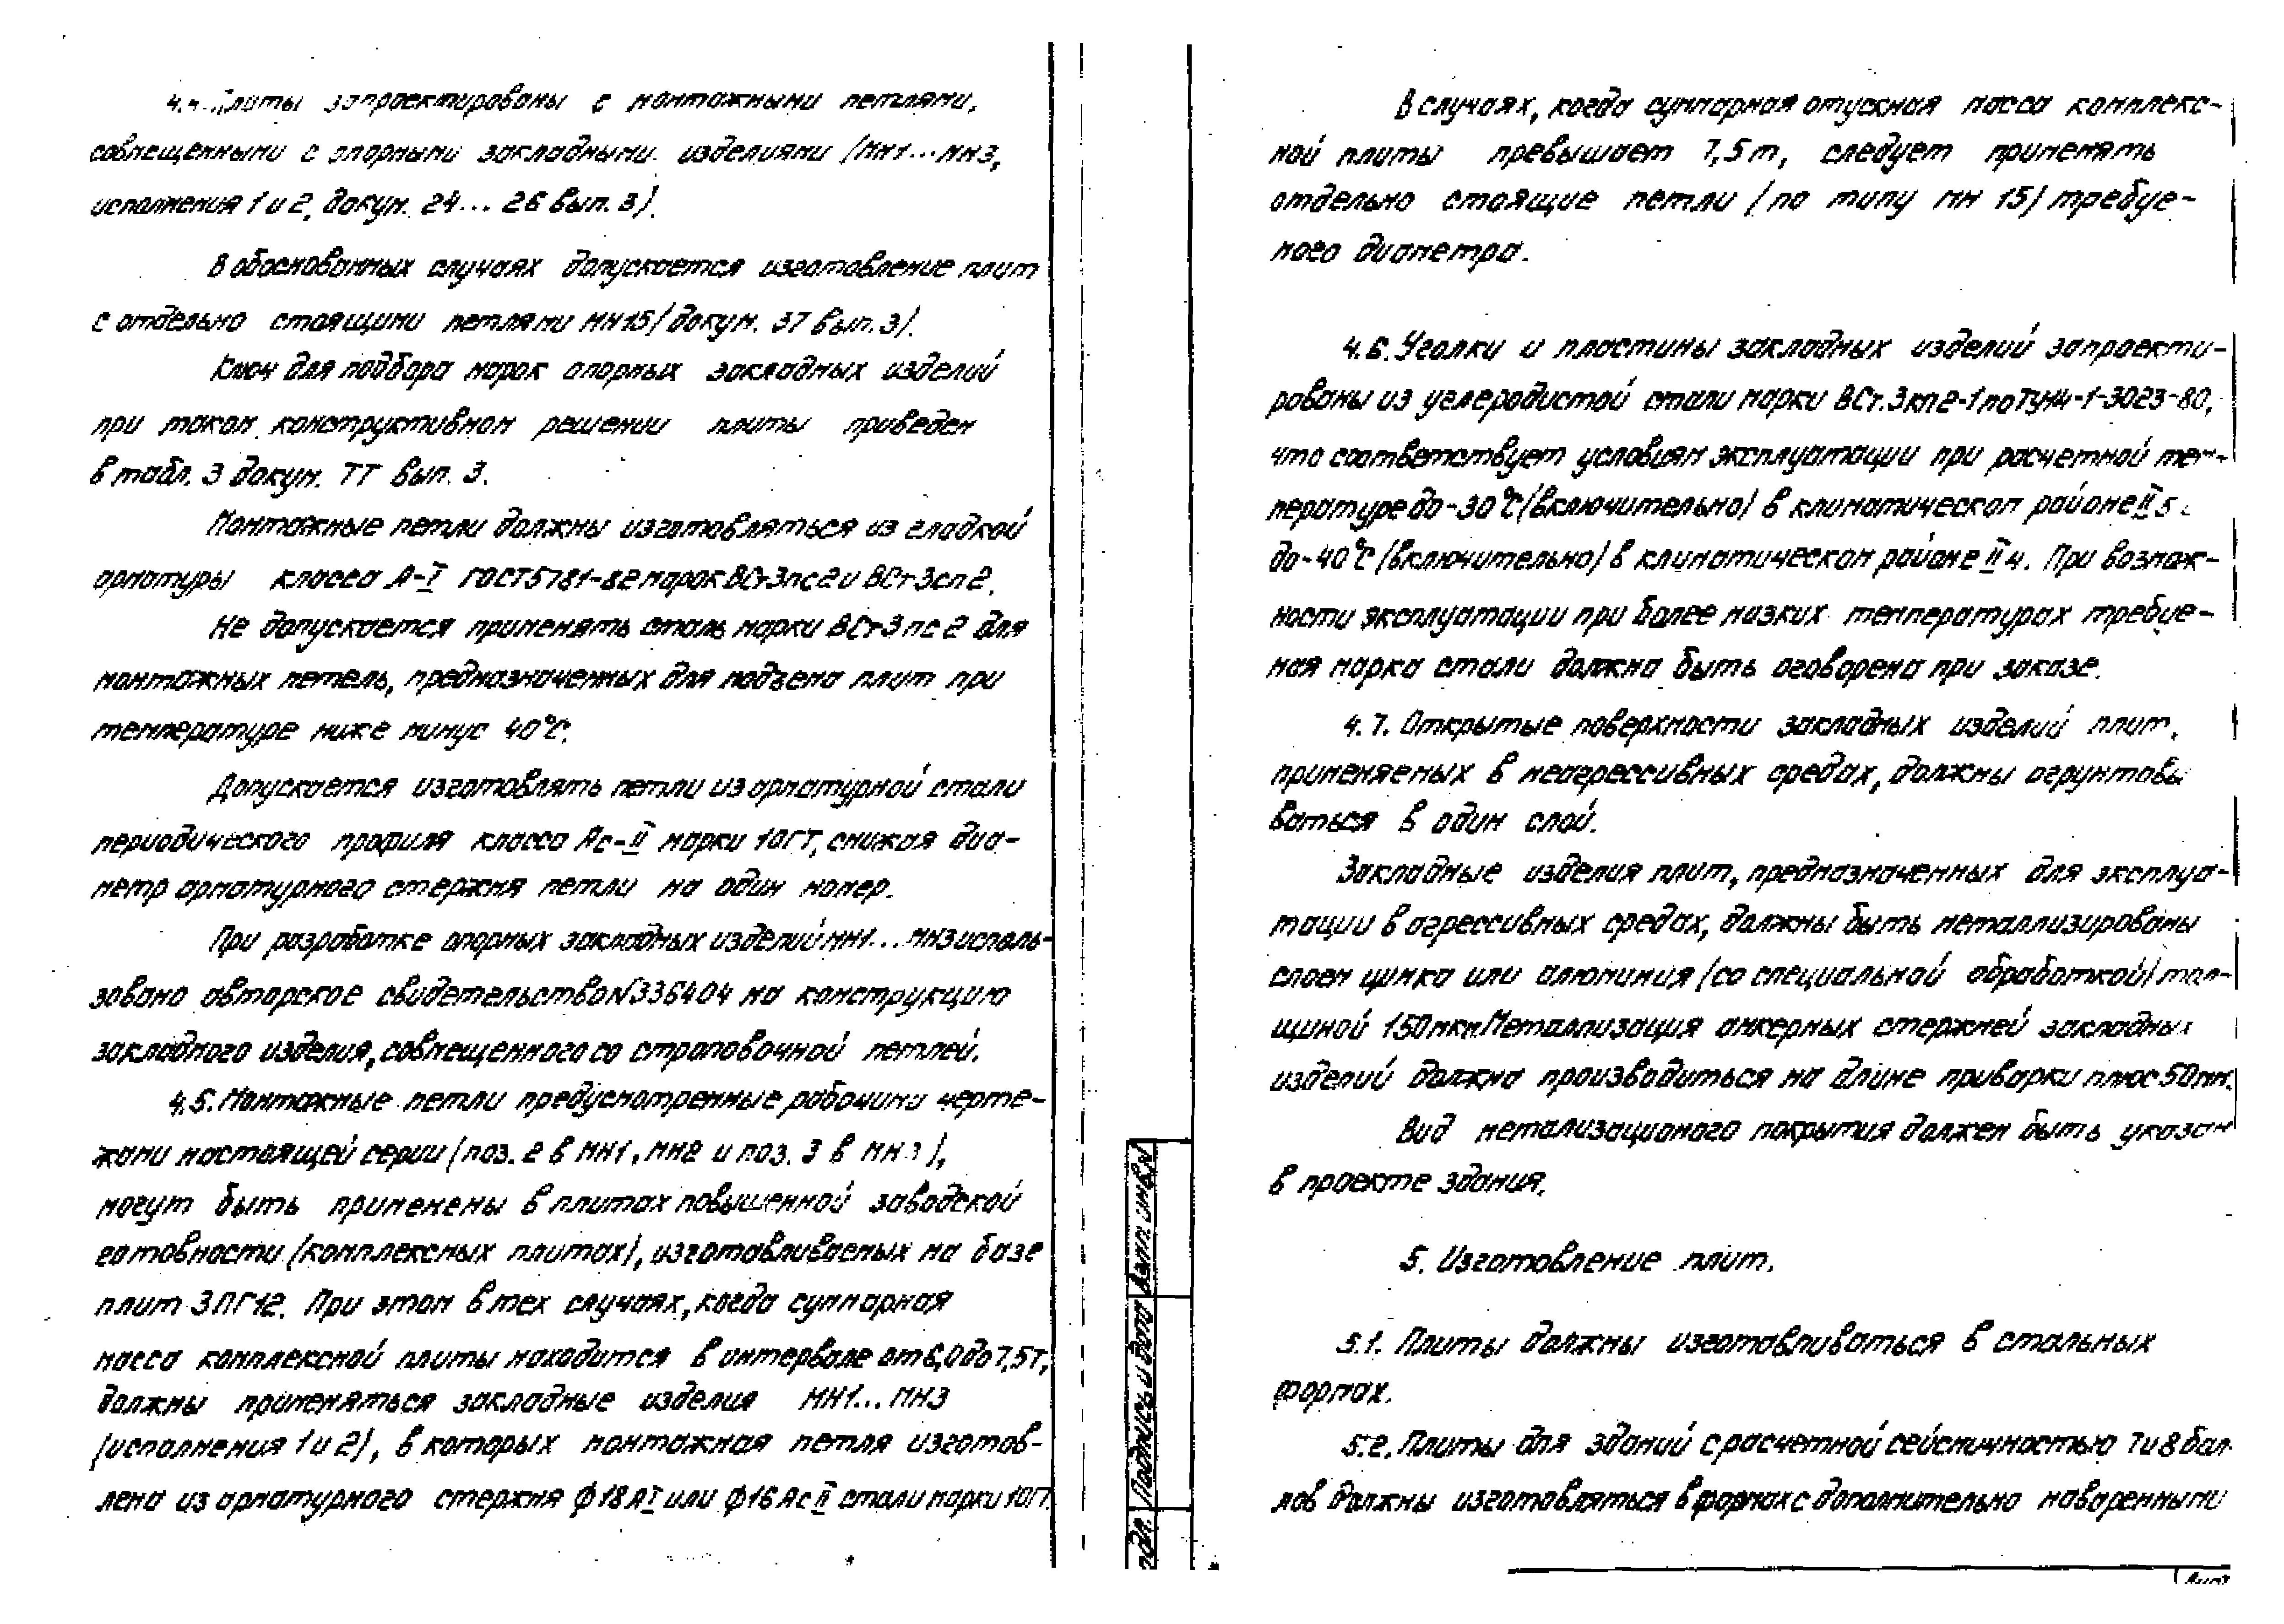 4.4. Плиты запроектированы с монтажными петлями,
совмещенными с опорными закладными изделиями (МН1...МН3,
исполнения 1 и 2, докум. 24... 26 вып. 3).
В обоснованных случаях допускается изготовление плит
с отдельно стоящими петлями МН15 (докум. 37 вып. 3).
Ключ для подбора марок опорных закладных изделий
при таком конструктивном решении плиты приведен
в табл. 3 докум. ТТ вып. 3.
Монтажные петли должны изготовляться из гладкой
арматуры класса А-I ГОСТ 5781-82 марок ВСт3пс2 и ВСт3сп2.
Не допускается применять сталь марки ВСт3пс2 для
монтажных петель, предназначенных для подъема плит при
температуре ниже минус 40°С.
Допускается изготовлять петли из арматурной стали
периодического профиля класса Ас-II марки 10ГТ, снижая диа-
метр арматурного стержня петли на один номер.
При разработке опорных закладных изделий МН1...МН3 исполь-
зовано авторское свидетельство N336404 на конструкцию
закладного изделия, совмещенного со строповочной петлей.
4.5. Монтажные петли предусмотренные рабочими черте-
жами настоящей серии (поз. 2 в МН1, МН2 и поз. 3 в МН3),
могут быть применены в плитах повышенной заводской
готовности (комплексных плитах), изготавливаемых на базе
плит 3ПГ12. При этом в тех случаях, когда суммарная
масса комплексной плиты находится в интервале от 6,0 до 7,5т,
должны применяться закладные изделия МН1...МН3
(исполнения 1 и 2), в которых монтажная петля изготов-
лена из арматурного стержня ф18 АI или ф16 Ас II стали марки 10ГТ.
Взам. инв. N
Подпись и дата
подл.
В случаях, когда суммарная отпускная масса комплекс-
ной плиты превышает 7,5т, следует применять
отдельно стоящие петли (по типу МН 15) требуе-
мого диаметра.
4.6. Уголки и пластины закладных изделий запроекти-
рованы из углеродистой стали марки ВСт.3кп2-1 по ТУ14-1-3023-80,
что соответствует условиям эксплуатации при расчетной тем-
пературе до -30°С (включительно) в климатическом районе II 5
до -40°С (включительно) в климатическом районе II 4. При возмож-
ности эксплуатации при более низких температурах требуе-
мая марка стали должна быть оговорена при заказе.
4.7. Открытые поверхности закладных изделий плит,
применяемых в неагрессивных средах, должны огрунтовы
ваться в один слой.
Закладные изделия плит, предназначенных для эксплуа-
тации в агрессивных средах, должны быть металлизированы
слоем цинка или алюминия (со специальной обработкой) тол-
щиной 150мкм. Металлизация анкерных стержней закладных
изделий должна производиться на длине приварки плюс 50мм.
Вид метализационого покрытия должен быть указан
в проекте здания.
5. Изготовление плит.
5.1. Плиты должны изготавливаться в стальных
формах.
5.2. Плиты для зданий с расчетной сейсмичностью 7 и 8 бал-
лов должны изготовляться в формах с дополнительно наваренными
Лист